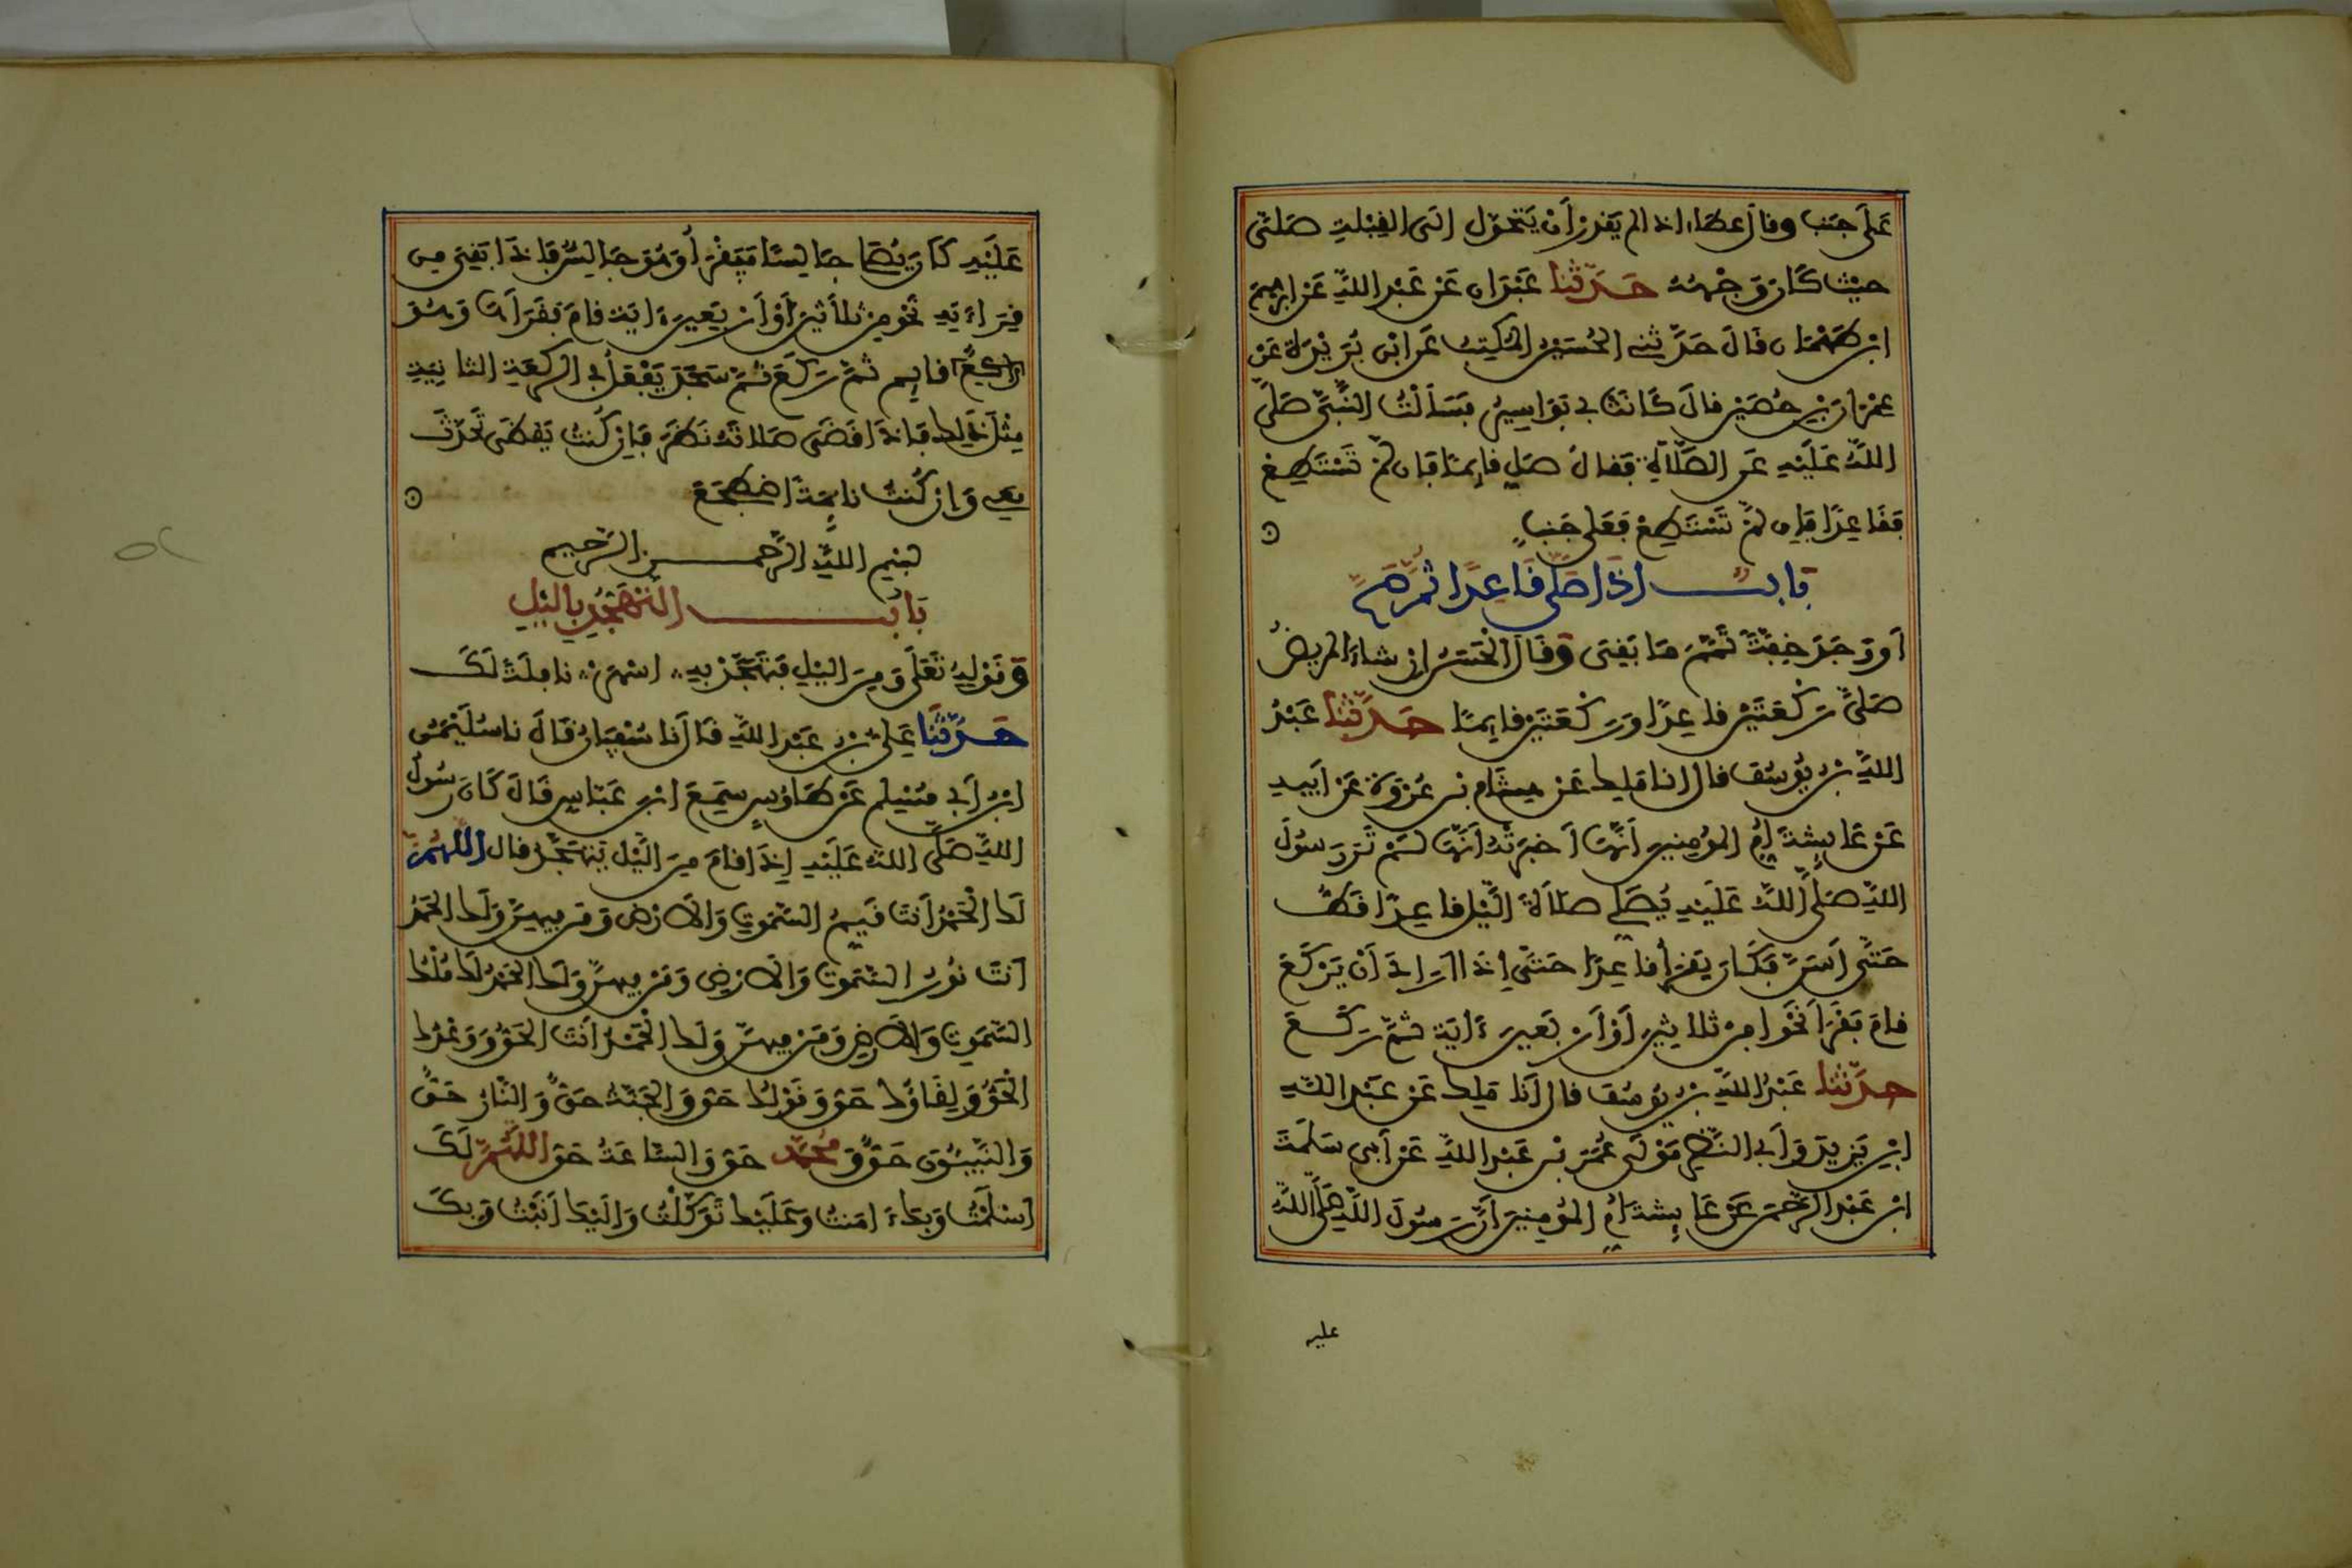 عَلَى جَنْبٍ وقال عطاء اذا لم يَقدِرْ أَنْ يَتَحَوَّلَ الَى القِبْلَةِ صَلَّى
حَيْثُ كَانَ وَجْهُهُ حَدَّثَنَا عَبْدَانُ عَنْ عَبْدِ اللَّهِ عَنْ ابْرٰهِيمَ
ابْنِ طَهْمَانَ قَالَ حَدَّثَنِى الحُسَيْنُ المُكْتِبُ عَنِ ابْنِ بُرَيْدَةَ عَنْ
عِمْرَانَ بْنِ حُصَيْنٍ قالَ كَانَتْ بِى بَوَاسِيرُ فَسَأَلْتُ النَّبِىَّ صَلَّى
اللَّهُ عَلَيْهِ عَنِ الصَّلَاةِ فَقالَ صَلِّ قايِمًا فَإِن لَّمْ تَسْتَطِعْ
فَقَاعِدًا فَإِن لَّمْ تَسْتَطِعْ فَعَلَى جَنْبٍ
بَابٌ اذَا صَلَّى قَاعِدًا ثُمَّ صَحَّ
أَوْ وَجَدَ خِفَّةً تَمَّمَ مَا بَقِىَ وَقَالَ الْحَسَنُ إن شاءَ المريضُ
صَلَّى رَكْعَتَيْنِ قاعِدًا وَرَكْعَتَيْنِ قايِمًا حَدَّثَنَا عَبْدُ
اللَّهِ بْنُ يُوسُفَ قال انا مَلِكٌ عَنْ هِشَامِ بْنِ عُرْوَةَ عَنْ أَبِيهِ
عَنْ عَايِشَةَ أُمِّ المُؤمِنِينَ أَنَّهَا أَخْبَرَتْهُ أَنَّهَا لَمْ تَرَ رَسُولَ
اللَّهِ صَلَّى اللَّهُ عَلَيْهِ يُصَلِّى صَلَاةَ اللَّيْلِ قاعِدًا قَطُّ
حَتَّى أَسَنَّ فَكَانَ يَقْرَأُ قاعِدًا حَتَّى إِذَا أَرَادَ أَنْ يَرْكَعَ
قامَ فَقَرَأَ نَحْوًا مِنْ ثلاثِينَ أَوْ أَرْبَعِينَ ءَايَةً ثُمَّ رَكَعَ
حدَّثَنَا عَبْدُ اللَّهِ بْنُ يُوسُفَ قال أَنَا مَلِكٌ عَنْ عَبْدِ اللَّهِ
ابْنِ يَزِيدَ وَأَبِى النَّضْرِ مَوْلَى عُمَرَ بْنِ عَبْدِ اللَّهِ عَنْ أَبِى سَلَمَةَ
ابْنِ عَبْدِ الرَّحْمٰنِ عَنْ عَايِشَةَ أُمِّ المُؤمِنِينَ أَنَّ رَسُولَ اللَّهِ صَلَّى اللَّهُ
عليه
عَلَيْهِ كَانَ يُصَلِّى جَالِسًا فَيَقْرَأُ وَهُوَ جَالِسٌ فَإِذَا بَقِىَ مِن
قِرَاءَتِهِ نَحْوٌ مِنْ ثَلَاثِينَ أَوْ أَرْبَعِينَ ءَايَةً قامَ فَقَرَأَهَا وَهُوَ
قايِم ثُمَّ رَكَعَ ثُمَّ سَجَدَ يَفْعَلُ فِى الرَّكْعَةِ الثَّانِيَةِ
مِثْلَ ذَلِكَ فَإِذَا قَضَى صَلَاتَهُ نَظَرَ فَإِن كُنتُ يَقْظَى تَحَدَّثَ
مَعِى وَإِن كُنتُ نَايِمَةً اضْطَجَعَ
بِسْمِ اللَّهِ الرَّحْمٰنِ الرَّحِيمِ
بَابُ التَّهَجُّدِ بِالَّيْلِ
وَقَوْلِهِ تَعَلَى وَمِنَ الَّيْلِ فَتَهَجَّدْ بِهِ اسْهَرْ نافِلَةً لَّكَ
حَدَّثَنَا عَلِىُّ بْنُ عَبْدِ اللَّهِ قَالَ نا سُفْيَانُ قَالَ نا سُلَيْمَنُ
ابْنُ أَبِى مُسْلِمٍ عَنْ طَاوُسٍ سَمِعَ ابْنَ عَبَّاسٍ قَالَ كَانَ رَسُولُ
اللَّهِ صَلَّى اللَّهُ عَلَيْهِ إِذَا قامَ مِنَ الَّيْلِ يَتَهَجَّدُ قال اللَّهُمَّ
لَكَ الْحَمْدُ أَنتَ قَيِّمُ السَّمَوَتِ وَالأَرْضِ وَمَن فِيهِنَّ وَلَكَ الحَمْدُ
أَنتَ نُورُ السَّمَوَتِ وَالأَرْضِ وَمَنْ فِيهِنَّ وَلَكَ الحَمْدُ لَكَ مُلْكُ
السَّمَوَتِ وَالأَرْضِ وَمَنْ فِيهِنَّ وَلَكَ الْحَمْدُ أَنتَ الحَقُّ وَوَعْدُكَ
الْحَقُّ وَلِقَاؤُكَ حَقٌّ وَقَوْلُكَ حَقٌّ وَالجَنَّةُ حَقٌّ وَالنَّارُ حَقٌّ
وَالنَّبِيئُونَ حَقٌّ وَمُحَمَّدٌ حَقٌّ وَالسَّاعَةُ حَقٌّ اللَّهُمَّ لَكَ
أَسْلَمْتُ وَبِكَ ءَامَنتُ وَعَلَيْكَ تَوَكَّلْتُ وَإلَيْكَ أَنَبْتُ وَبِكَ